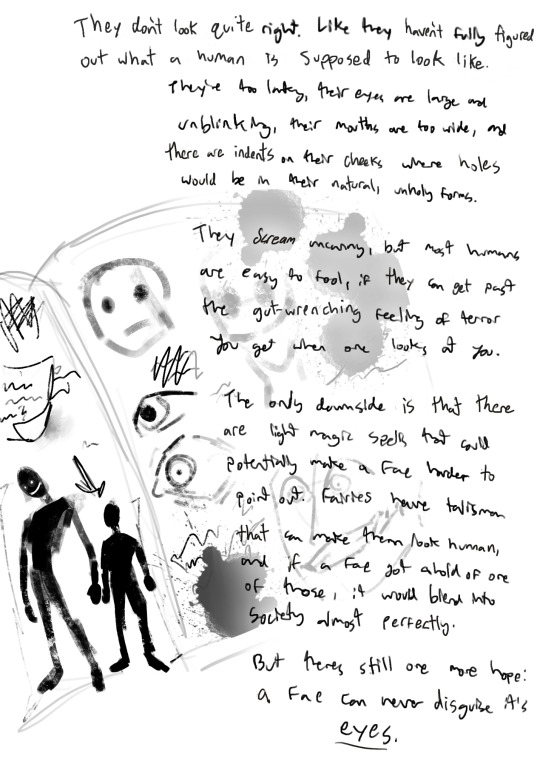 They don't look quite right. Like they haven't fully figured
out what a human is supposed to look like.
They're too lanky, their eyes are large and
unblinking, their mouths are too wide, and
there are indents on their cheeks where holes
would be in their natural, unholy forms.
They scream uncanny, but most humans
are easy to fool, if they can get past
the gut-wrenching feeling of terror
you get when one looks at you.
The only downside is that there
are light magic spells that could
potentially make a Fae harder to
point out. Fairies have talisman
that can make them look human,
and if a Fae got ahold of one
of those, it would blend into
society almost perfectly.
But theres still one more hope:
a Fae can never disguise it's
eyes.